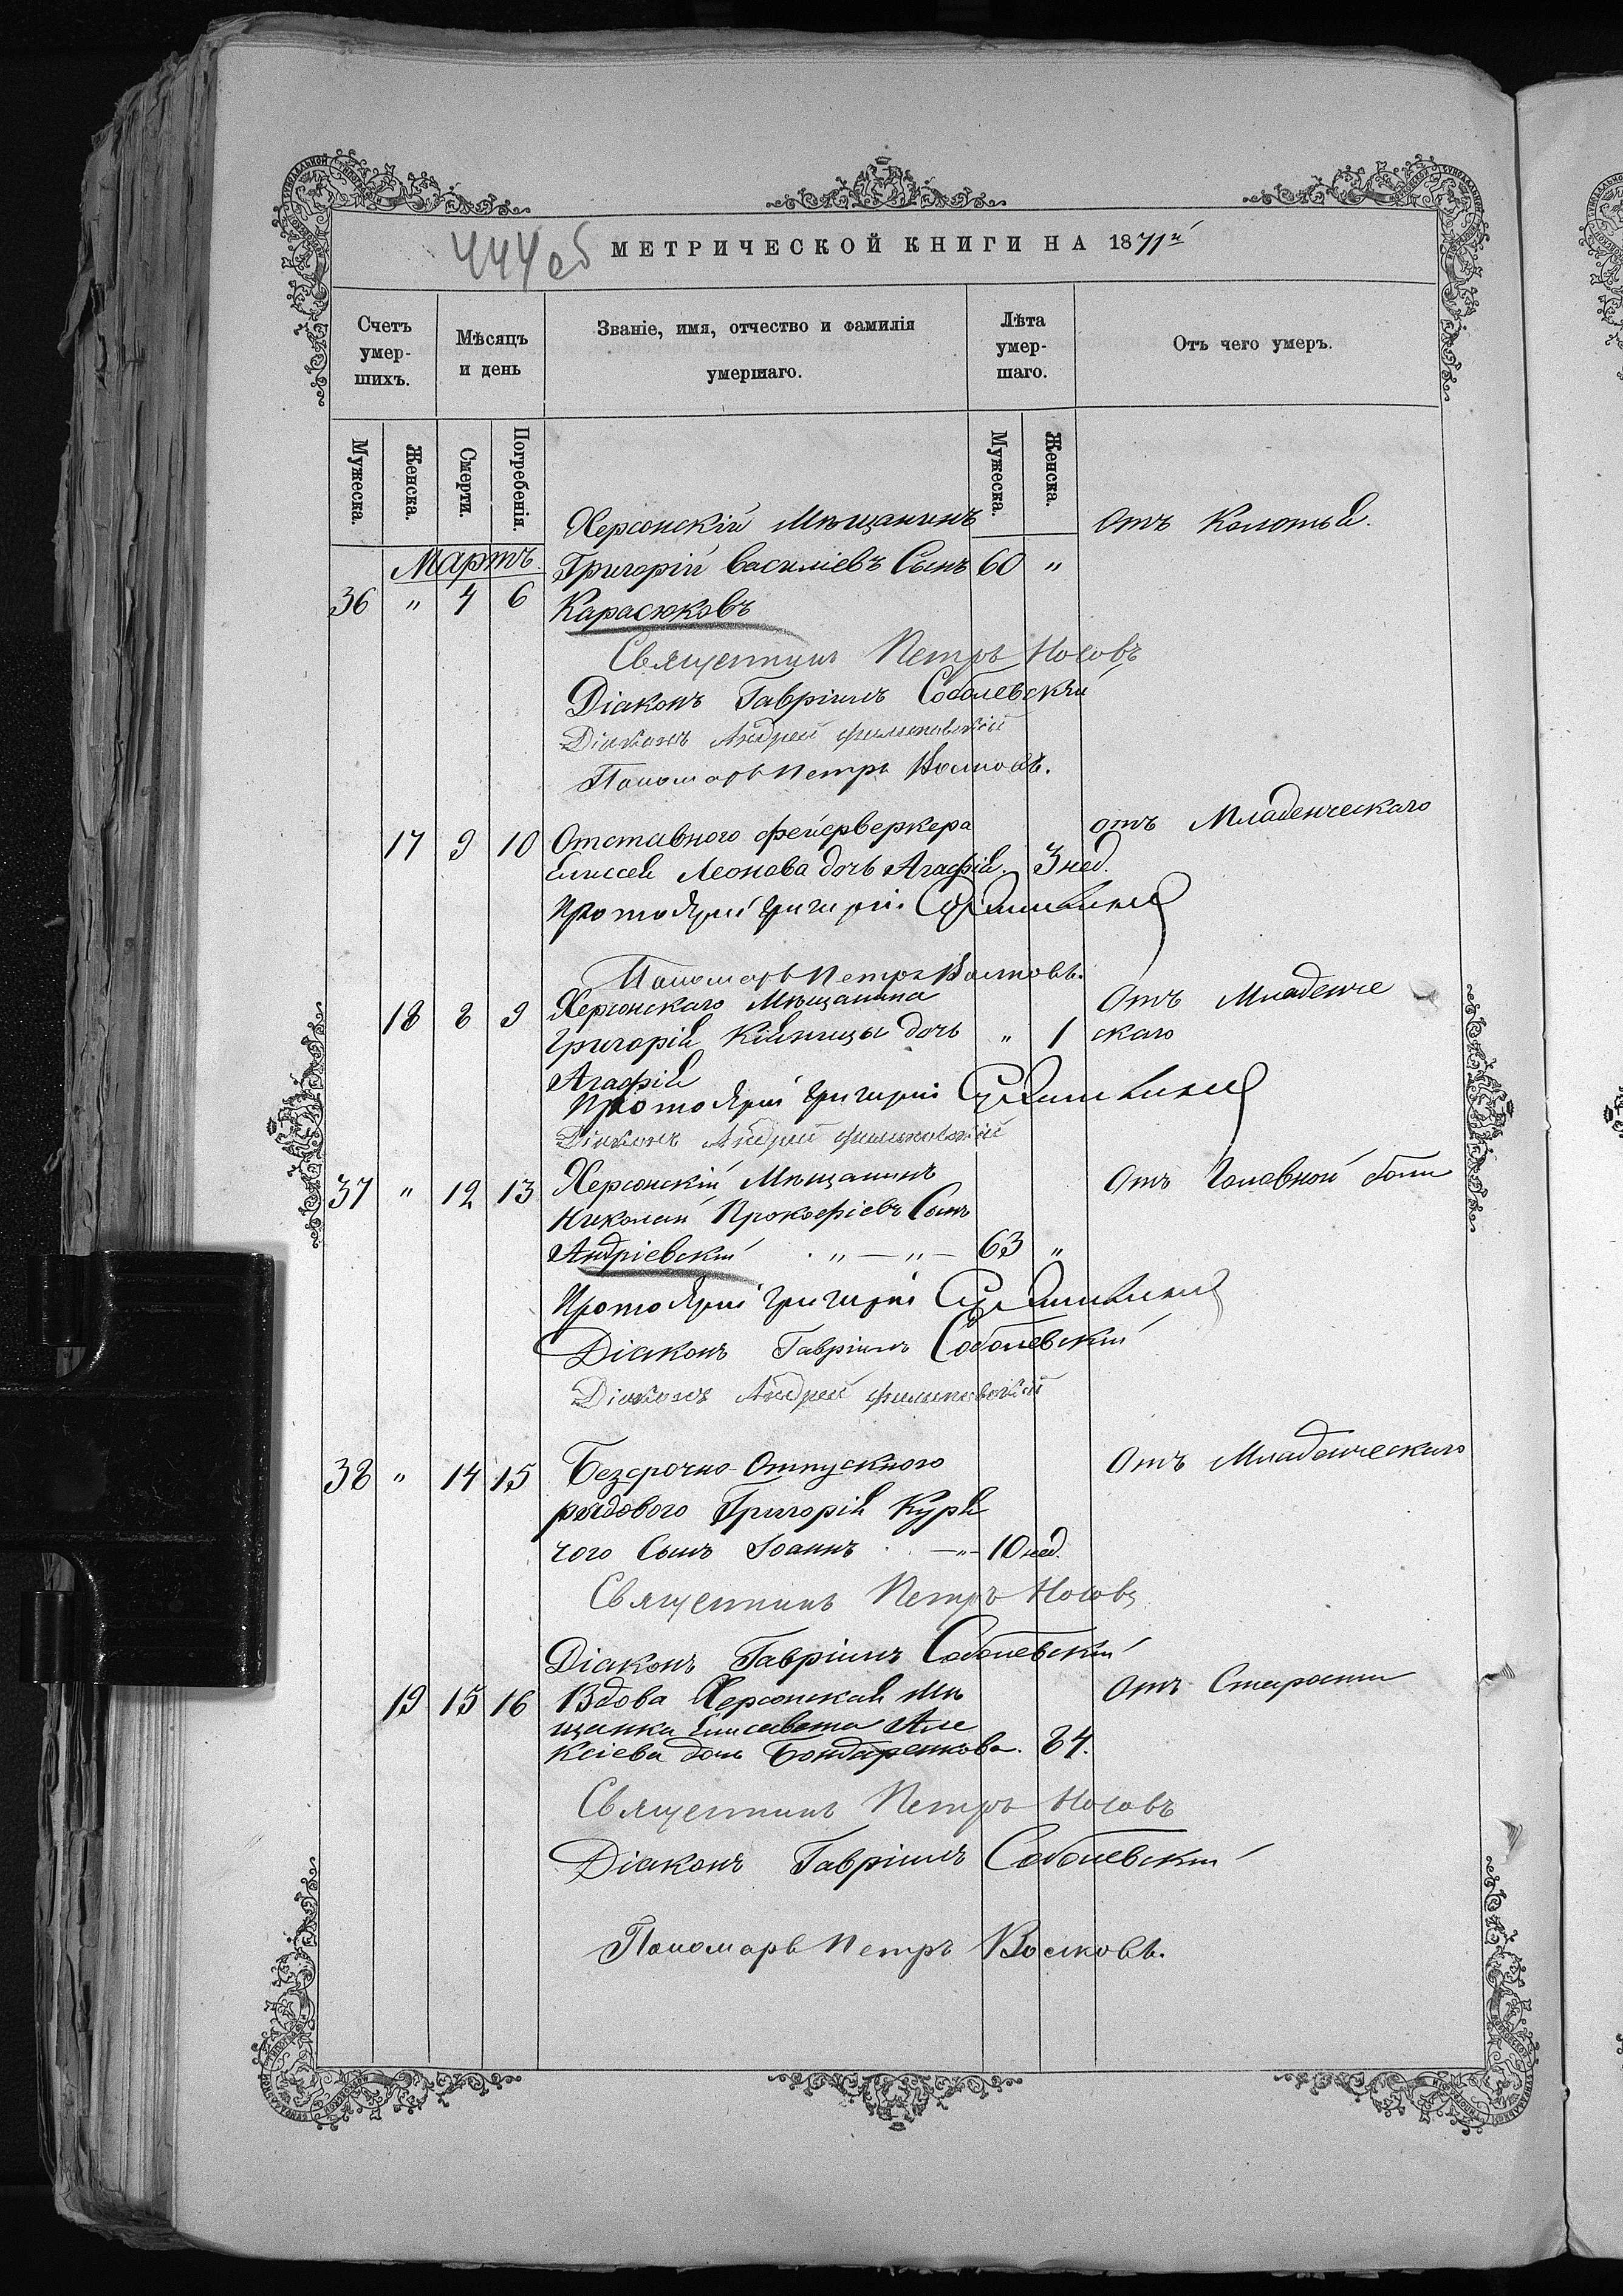 444об
МЕТРИЧЕСКОЙ КНИГИ НА 1871й
Счетъ умер-шихъ.
Мѣсяцъ и день
Званіе, имя, отчество и фамилія умершаго.
Лѣта умер-шаго.
Отъ чего умеръ.
Мужеска.
Женска.
Смерти.
Погребенія.
Мужеска.
Женска.
Херсонскій Мѣщанинъ Отъ Колотья.
Мартъ. Григорій Василіевъ Сынъ 60 "
36 " 4 6 Карасюковъ
Священникъ Петръ Носовъ
Діаконъ Гавріилъ Соболевскій
Діаконъ Андрей Филиповскій
Пономарь Петръ Волковъ.
17 9 10 Отставного фейерверкера отъ Младенческаго
Елисея Леонова дочь Агафія. 3 нед.
Протоіерей Григорій
Пономарь Петръ Волковъ.
18 8 9 Херсонскаго Мѣщанина Отъ Младенче
Григорія дочь " 1 скаго
Агафія
Протоіерей Григорій
Діаконъ Андрей Филиповскій
37 " 12 13 Херсонскій Мѣщанинъ Отъ Головной боли
Николай Прокофіевъ Сынъ
Андріевскій " — " — 63 "
Протоіерей Григорій
Діаконъ Гавріилъ Соболевскій
Діаконъ Андрей Филиповскій
38 " 14 15 Безсрочно-Отпускного Отъ Младенческаго
рядового Григорія Куря
чого Сынъ Іоаннъ — " — 10 нед.
Священникъ Петръ Носовъ
Діаконъ Гавріилъ Соболевскій
19 15 16 Вдова Херсонская Мѣ Отъ Старости
щанка Елисавета Але
ксіева дочь Бондаренкова. 84.
Священникъ Петръ Носовъ
Діаконъ Гавріилъ Соболевскій
Пономарь Петръ Волковъ.